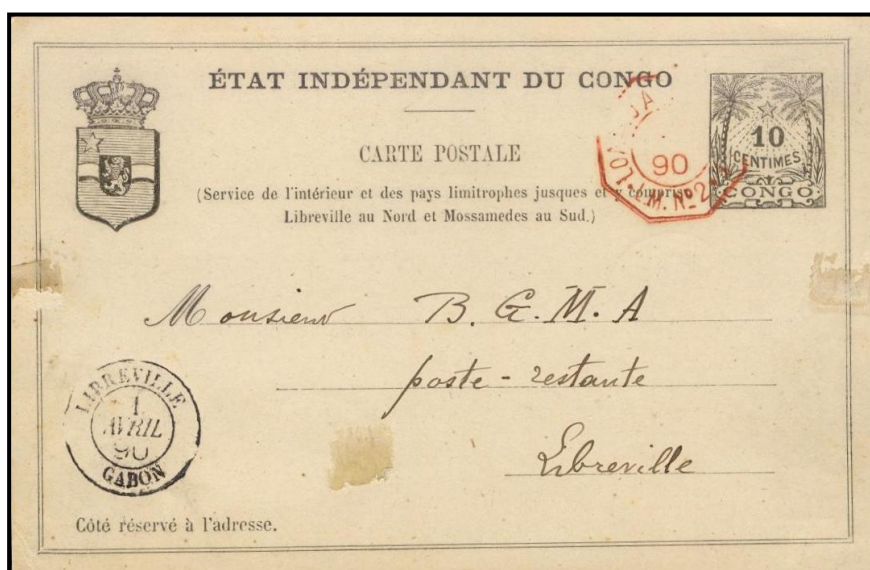 ÉTAT INDÉPENDANT DU CONGO
CARTE POSTALE
(Service de l'intérieur et des pays limitrophes jusques et y compris
Libreville au Nord et Mossamedes au Sud.)
10
CENTIMES
CONGO
90
L.M. Nº2
Monsieur B. G. M. A
poste-restante
Libreville
LIBREVILLE
1
AVRIL
90
GABON
Côté réservé à l'adresse.